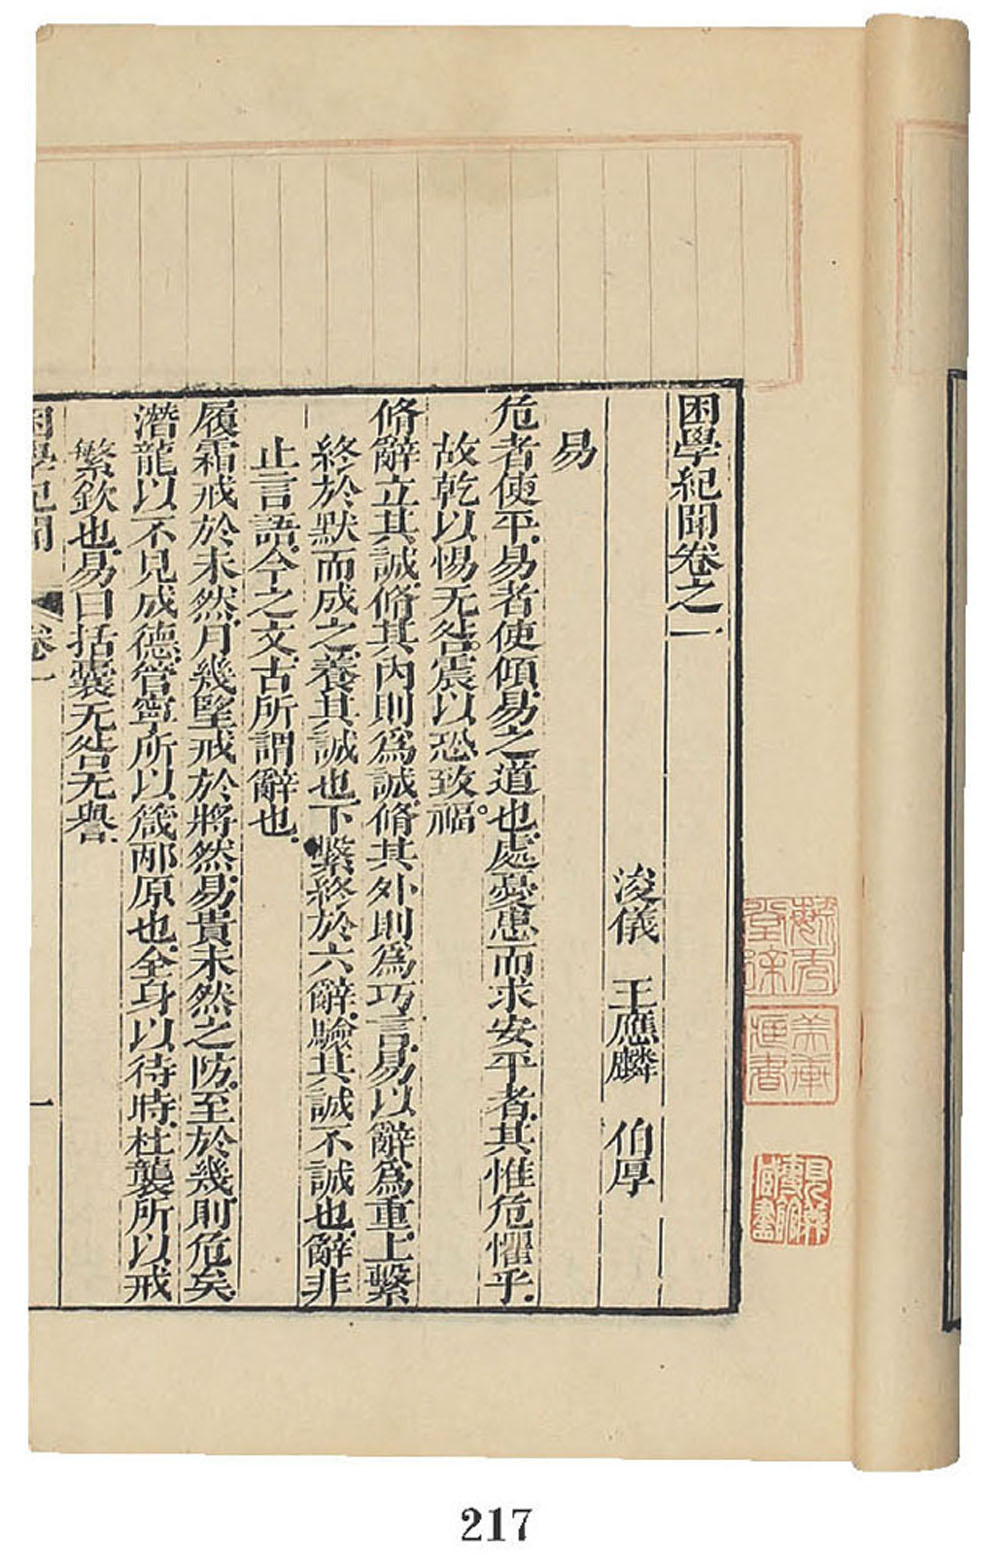 困學紀聞卷之一
浚儀 王應麟 伯厚
易
危者使平易者使傾易之道也處憂患而求安平者其惟危懼乎
故乾以惕无咎震以恐致福
脩辭立其誠脩其內則爲誠脩其外則爲巧言易以辭爲重上繫
終於默而成之養其誠也下繫終於六辭驗其誠不誠也辭非
止言語今之文古所謂辭也
履霜戒於未然月幾望戒於將然易貴未然之防至於幾則危矣
潛龍以不見成德管寧所以箴邴原也全身以待時杜襲所以戒
繁欽也易曰括囊无咎无譽
困學紀聞 卷一 一
217